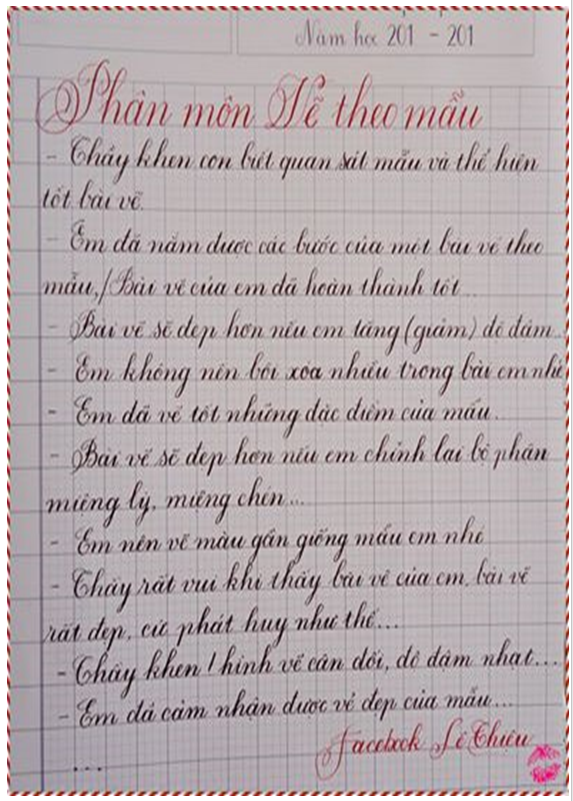 Năm học 201 - 201
Phân môn Vẽ theo mẫu
- Thầy khen con biết quan sát mẫu và thể hiện
tốt bài vẽ.
- Em đã nắm được các bước của một bài vẽ theo
mẫu,/Bài vẽ của em đã hoàn thành tốt...
- Bài vẽ sẽ đẹp hơn nếu em tăng (giảm) độ đậm...
- Em không nên bôi xóa nhiều trong bài em nhé
- Em đã vẽ tốt những đặc điểm của mẫu.
- Bài vẽ sẽ đẹp hơn nếu em chỉnh lại bộ phận
miệng ly, miệng chén...
- Em nên vẽ màu gần giống mẫu em nhé
- Thầy rất vui khi thấy bài vẽ của em, bài vẽ
rất đẹp, cứ phát huy như thế...
- Thầy khen! hình vẽ cân đối, độ đậm nhạt...
- Em đã cảm nhận được vẻ đẹp của mẫu...
Facebook Lê Thiệu
...